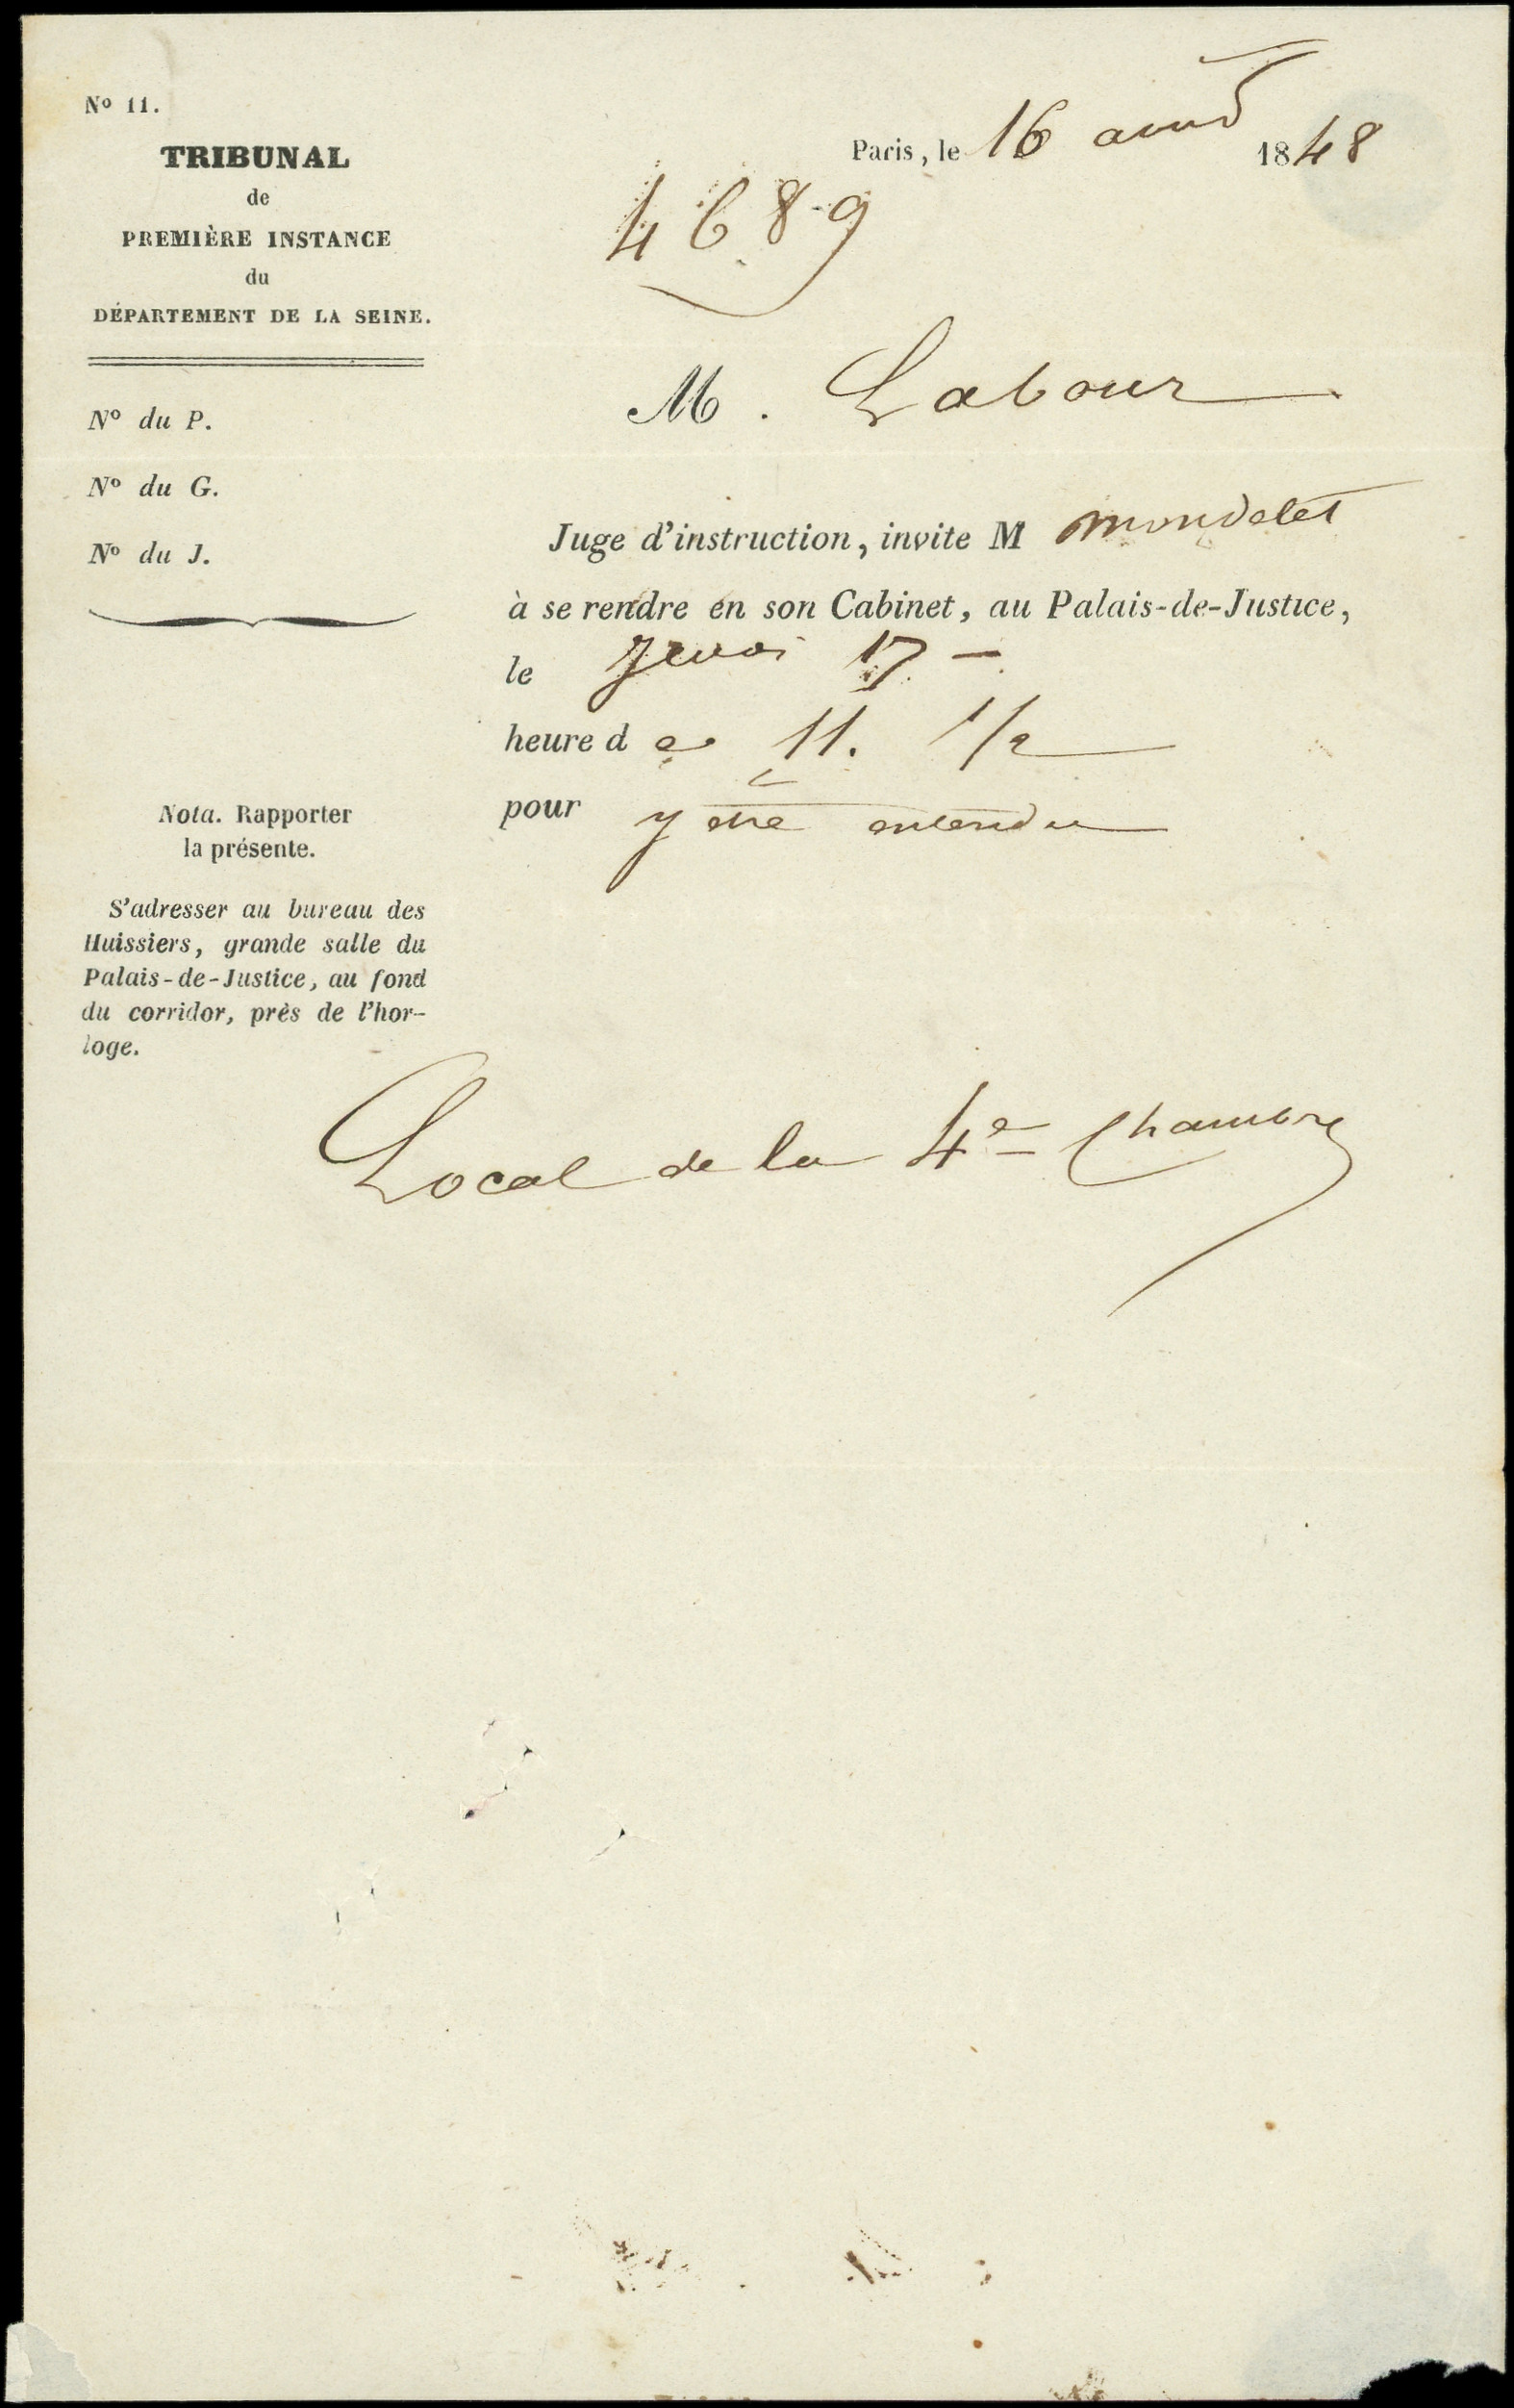 No 11.
TRIBUNAL
de
PREMIÈRE INSTANCE
du
DÉPARTEMENT DE LA SEINE.
No du P.
No du G.
No du J.
Nota. Rapporter
la présente.
S'adresser au bureau des
Huissiers, grande salle du
Palais-de-Justice, au fond
du corridor, près de l'hor-
loge.
Paris, le 16 aout 1848
4689
M. Labour
Juge d'instruction, invite M mondelet
à se rendre en son Cabinet, au Palais-de-Justice,
le Jeudi 17 -
heure de 11. 1/2
pour y être entendu
Local de la 4e Chambre